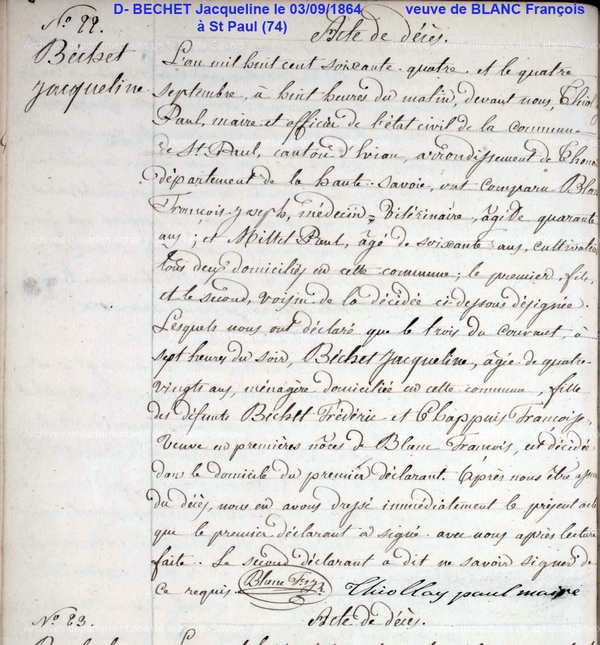 D- BECHET Jacqueline le 03/09/1864 veuve de BLANC François
à St Paul (74)
N°. 22.
Béchet
Jacqueline
Acte de décès.
L'an mil huit cent soixante-quatre et le quatre
septembre, à huit heures du matin, devant nous, Thiol
Paul, maire et officier de l'état civil de la commun-
de St Paul, canton d'Evian, arrondissement de Thonon
département de la haute-Savoie, ont Comparu Blan
François-Joseph, médecin-Vétérinaire, âgé de quarante
ans; et Millet Paul, âgé de soixante ans, cultivateur
tous deux domiciliés en cette commune; le premier, fils,
et le second, voisin de la décédée ci-dessous désignée.
Lesquels nous ont déclaré que le trois du courant, à
sept heures du soir, Béchet Jacqueline, âgée de quatre-
vingts ans, ménagère domiciliée en cette commune, fille
des défunts Béchet Frédéric et Chappuis Françoise,
Veuve en premières nôces de Blanc François, est décédée
dans le domicile du premier déclarant. Après nous être assu
du décès, nous en avons dressé immédiatement le présent acte
que le premier déclarant a signé avec nous après lecture
faite. Le second déclarant a dit ne savoir signer de
ce requis. Blanc Thiollay paul maire
N°. 23. Acte de décès.